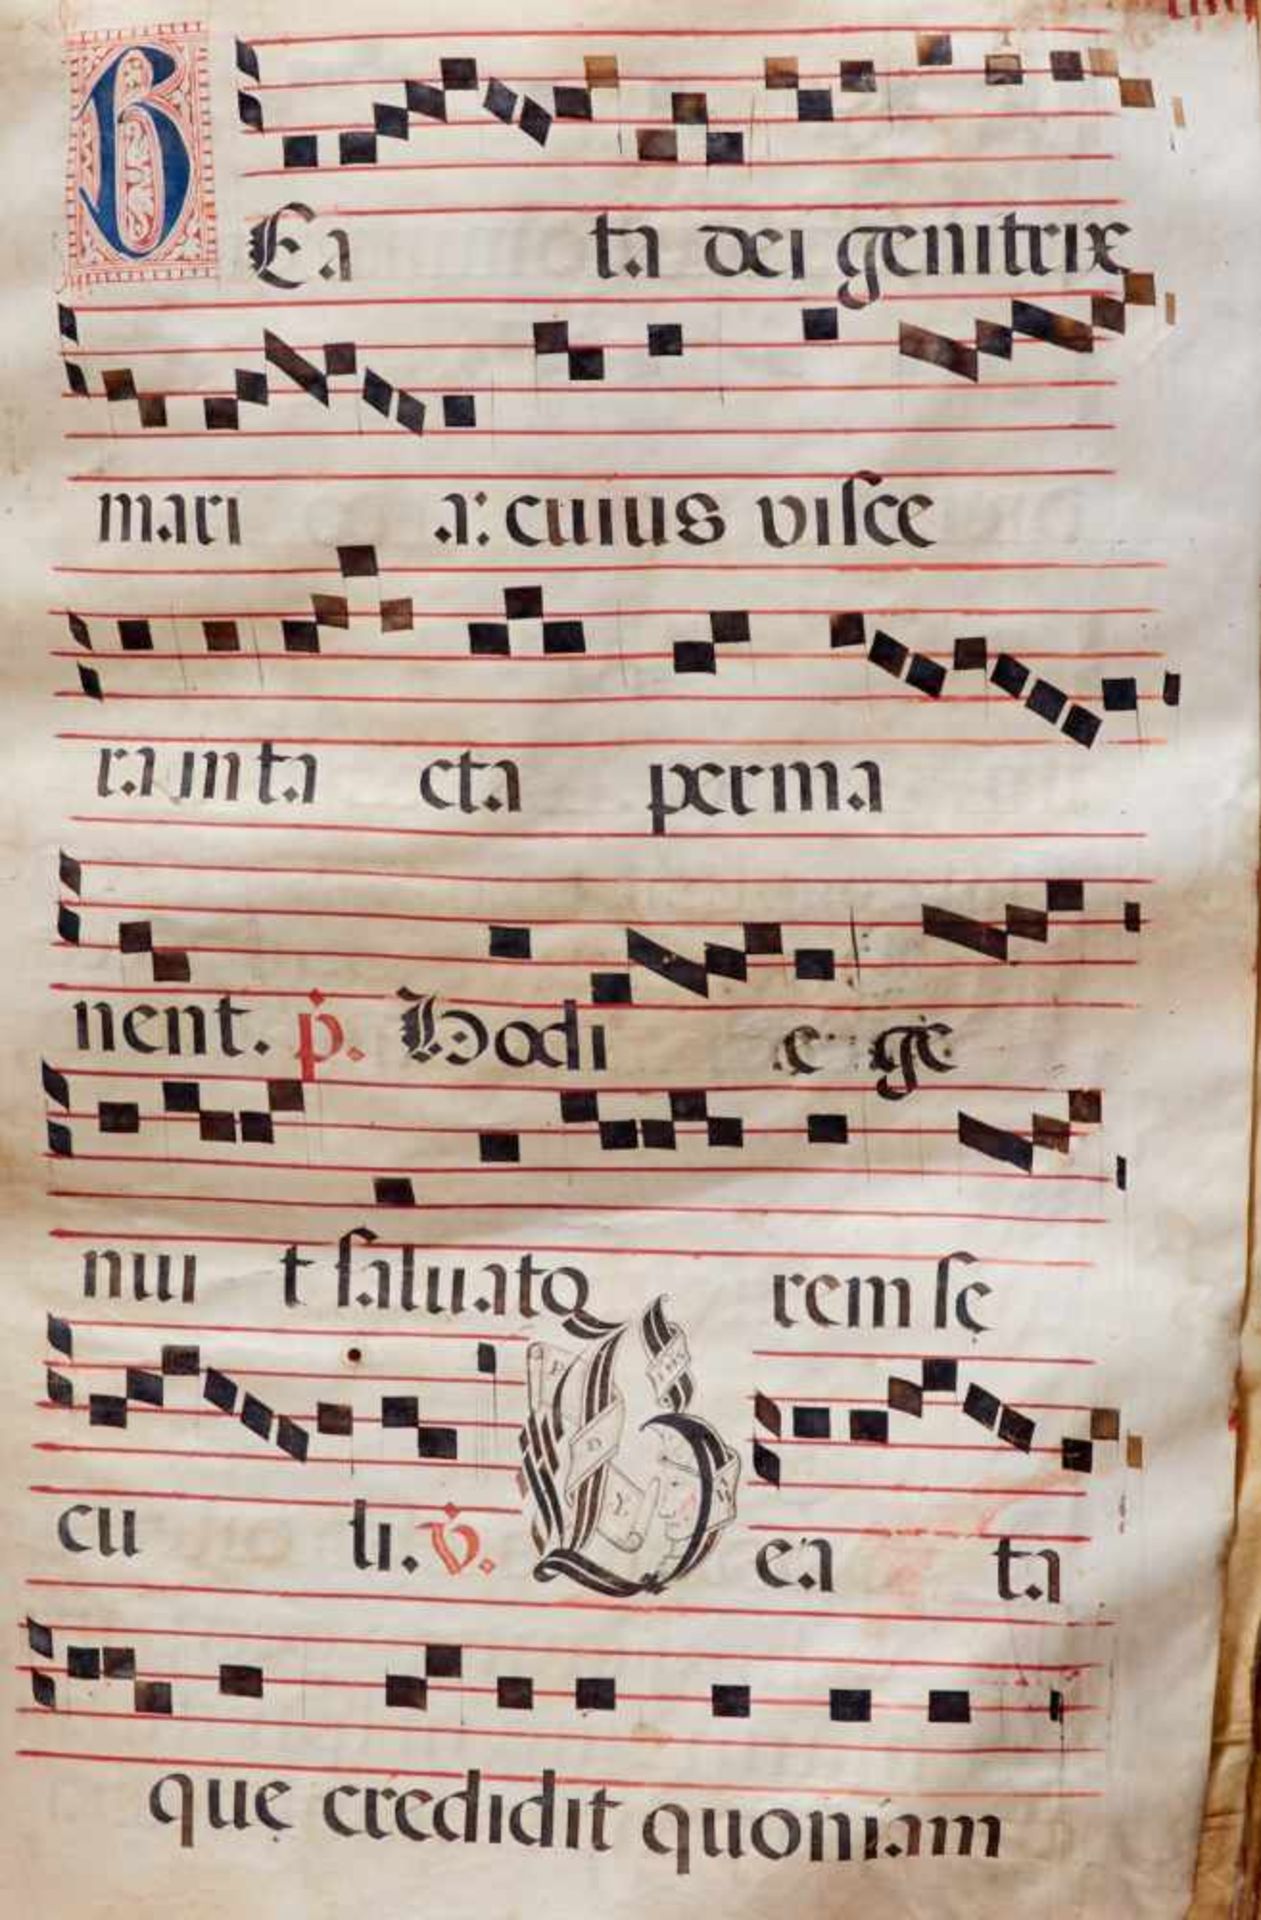 BEa ta dei genitrix
mari a: cuius visce
ra inta cta perma
nent. p. Hodi e ge
nui t saluato rem sę
cu li. v. Bea ta
quę credidit quoniam